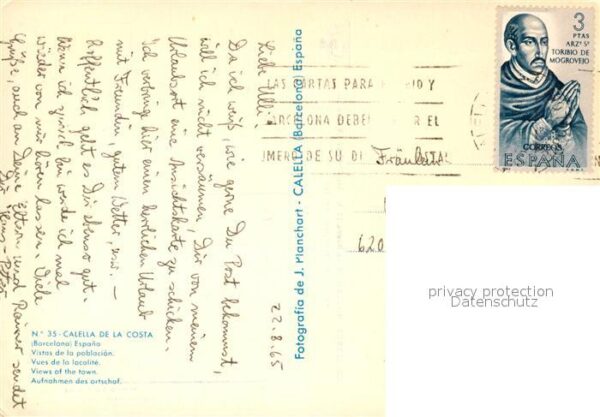 22.8.65
Liebe Ulli!
Da ich weiß, wie gerne Du Post bekommst,
will ich nicht versäumen, Dir von meinem
Urlaubsort eine Ansichtskarte zu schicken.
Ich verbringe hier einen herrlichen Urlaub
mit Freundin, gutem Wetter, usw. –
Hoffentlich geht es Dir ebenso gut.
Wenn ich zurück bin werde ich mal
wieder von mir hören lassen. Viele
Grüße, auch an Deine Eltern und Rainer sendet
Dir Hans-Peter
Nº 35 - CALELLA DE LA COSTA
(Barcelona) España
Vistas de la población.
Vues de la localité.
Views of the town.
Aufnahmen des ortschaf.
Fotografía de J. Planchart - CALELLA (Barcelona) España
LAS CARTAS PARA
BARCELONA DEBEN EL
NUMERO DE SU DI POSTAL
3
PTAS
ARZº Sº
TORIBIO DE
MOGROVEJO
CORREOS
ESPAÑA
Fräulein
620
privacy protection
Datenschutz